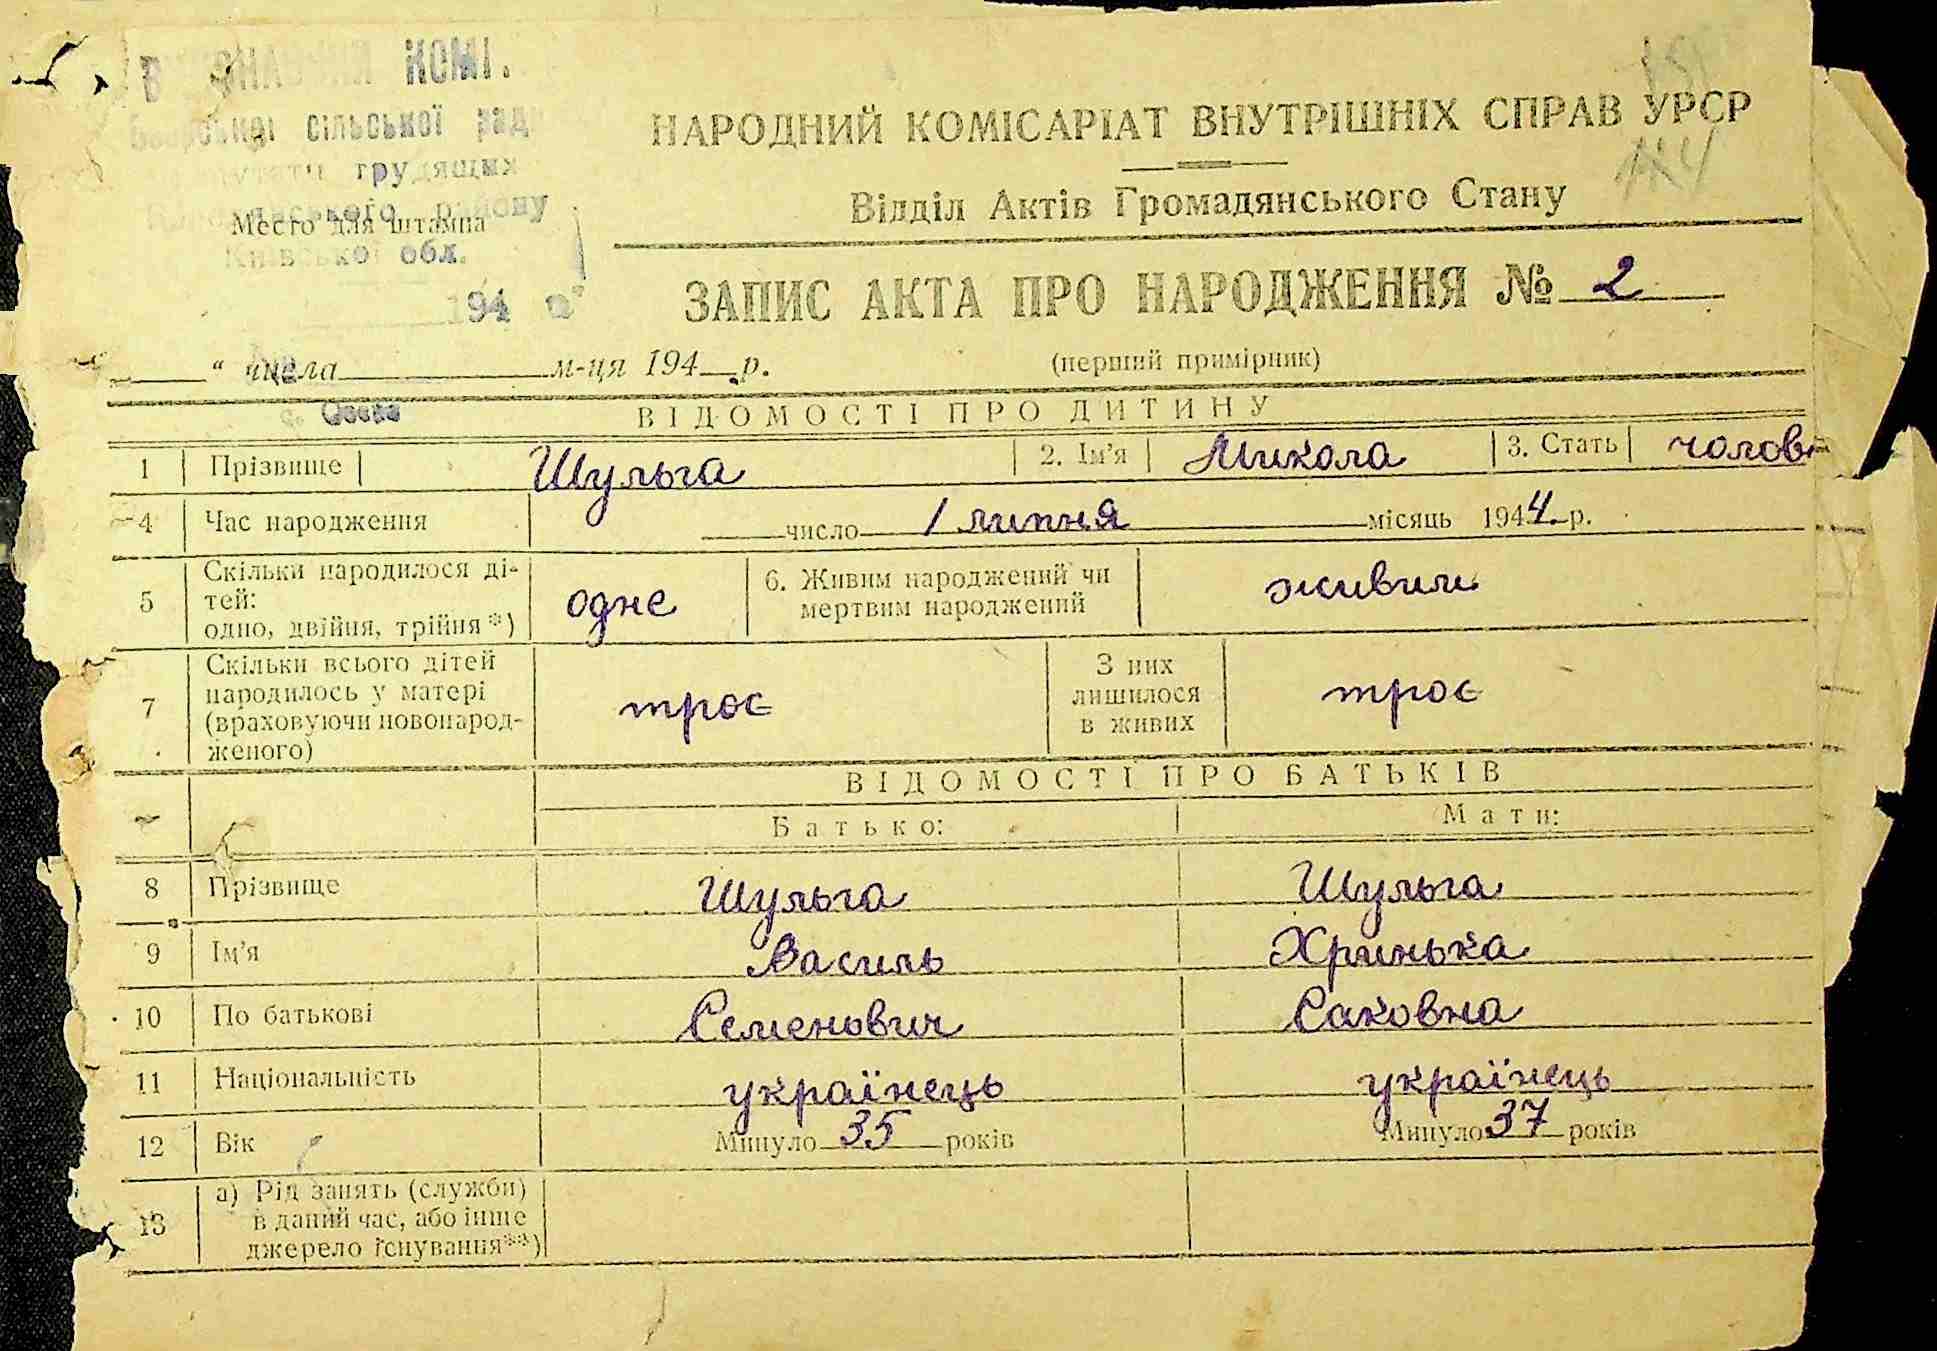 КОМІ.
сільської рад
трудящих
району
Место для штампа
Київської обл.
194
НАРОДНИЙ КОМІСАРІАТ ВНУТРІШНІХ СПРАВ УРСР
Відділ Актів Громадянського Стану
ЗАПИС АКТА ПРО НАРОДЖЕННЯ № 2
“ числа м-ця 194 р.
(перший примірник)
ВІДОМОСТІ ПРО ДИТИНУ
1 Прізвище Шульга 2. Ім’я Микола 3. Стать чолов
4 Час народження число 1 липня місяць 1944 р.
5 Скільки народилося ді-
тей:
одно, двійня, трійня *) одне 6. Живим народжений чи
мертвим народжений живим
7 Скільки всього дітей
народилось у матері
(враховуючи новонарод-
женого) троє З них
лишилося
в живих троє
ВІДОМОСТІ ПРО БАТЬКІВ
Батько: Мати:
8 Прізвище Шульга Шульга
9 Ім’я Василь Хринька
10 По батькові Семенович Саковна
11 Національність українець українець
12 Вік Минуло 35 років Минуло 37 років
13 а) Рід занять (служби)
в даний час, або інше
джерело існування**)